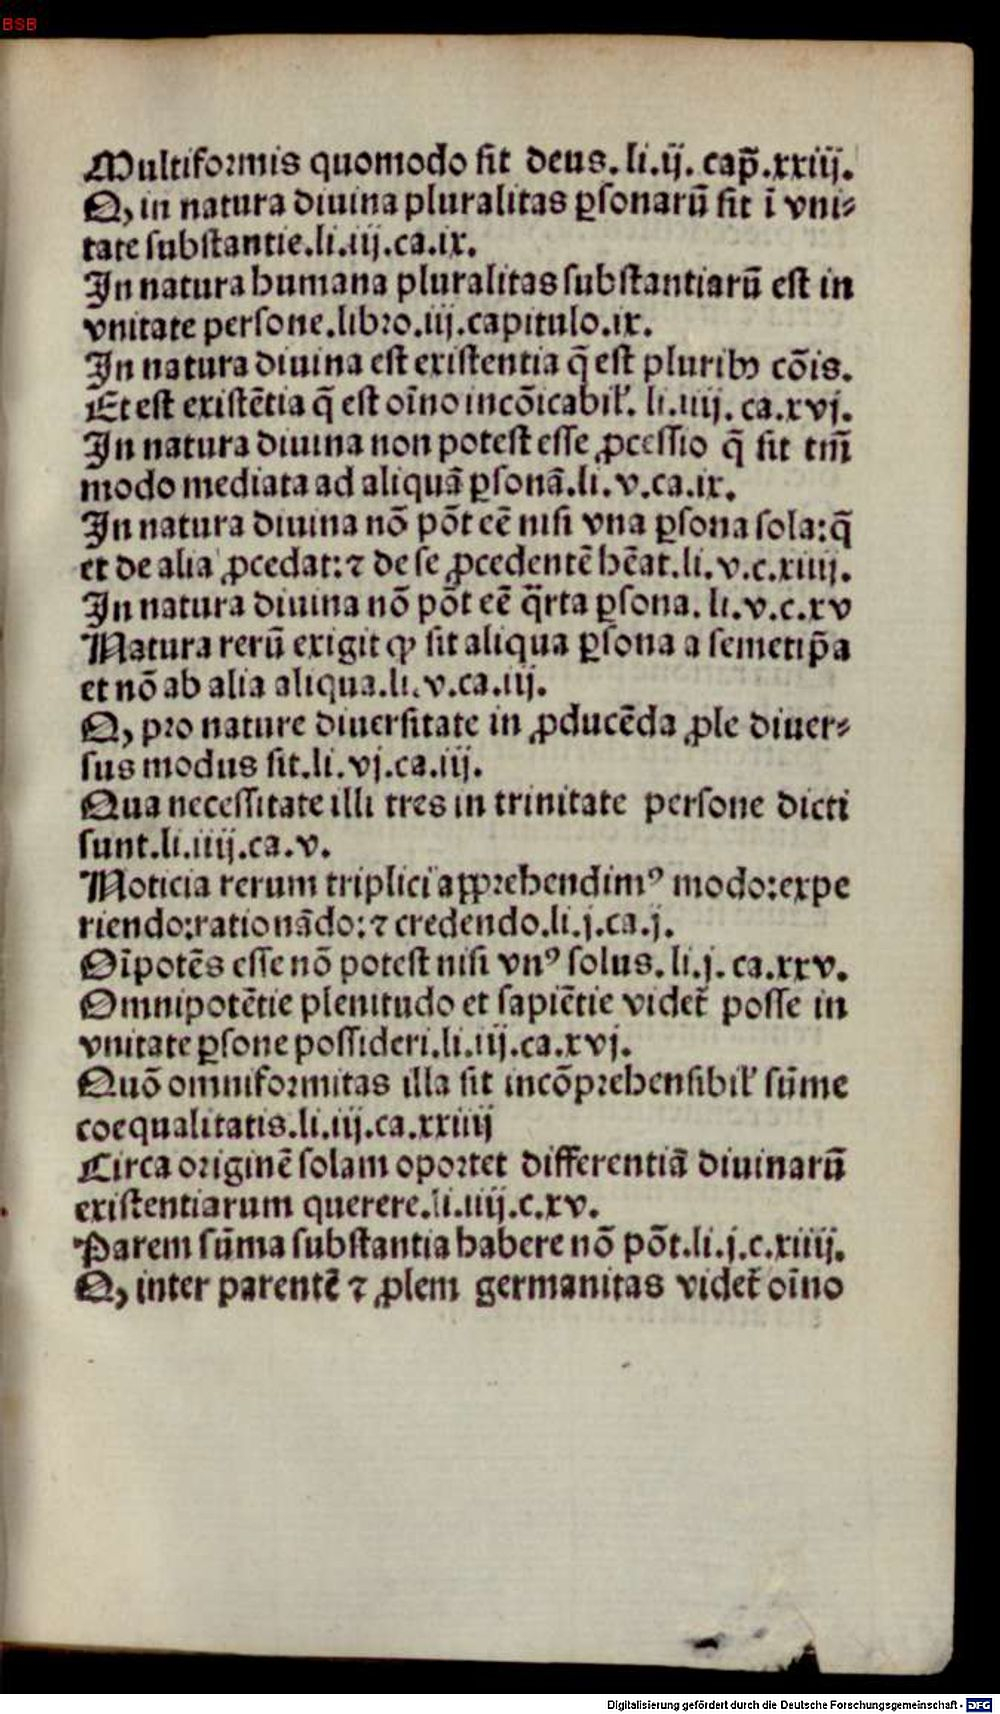 BSB
Multiformis quomodo sit deus. li.ij. cap̄.xxiij.
Q, in natura diuina pluralitas ꝑsonarū sit ī vni⸗
tate substantie.li.iij.ca.ix.
In natura humana pluralitas substantiarū est in
vnitate persone.libro.iij.capitulo.ix.
In natura diuina est existentia q̄ est pluribꝰ cōis.
Et est existētia q̄ est oīno incōicabil'. li.iiij. ca.xvj.
In natura diuina non potest esse ꝓcessio q̄ sit tm̄
modo mediata ad aliquā ꝑsonā.li.v.ca.ix.
In natura diuina nō pōt eē nisi vna ꝑsona sola:q̄
et de alia ꝓcedat:⁊ de se ꝓcedentē hēat.li.v.c.xiiij.
In natura diuina nō pōt eē q̄rta ꝑsona. li.v.c.xv
Natura rerū exigit ꝙ sit aliqua ꝑsona a semetip̄a
et nō ab alia aliqua.li.v.ca.iij.
Q, pro nature diuersitate in ꝓducēda ꝓle diuer⸗
sus modus sit.li.vj.ca.iij.
Qua necessitate illi tres in trinitate persone dicti
sunt.li.iiij.ca.v.
Noticia rerum triplici apprehendimꝰ modo:expe
riendo:rationādo:⁊ credendo.li.j.ca.j.
Oīpotēs esse nō potest nisi vnꝰ solus. li.j. ca.xxv.
Omnipotētie plenitudo et sapiētie videt̄ posse in
vnitate ꝑsone possideri.li.iij.ca.xvj.
Quō omniformitas illa sit incōprehensibil' sūme
coequalitatis.li.iij.ca.xxiiij
Circa originē solam oportet differentiā diuinarū
existentiarum querere.li.iiij.c.xv.
Parem sūma substantia habere nō pōt.li.j.c.xiiij.
Q, inter parentē ⁊ ꝓlem germanitas videt̄ oīno
Digitalisierung gefördert durch die Deutsche Forschungsgemeinschaft - DFG